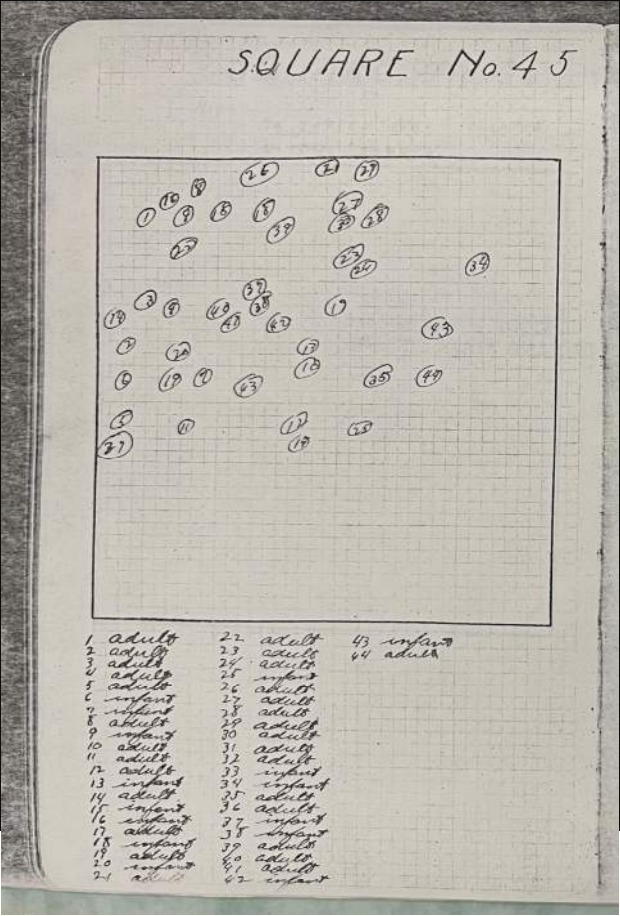 SQUARE No. 45
26 21 29
10 8
1 9 15 18 27
39 30 28
25
23
24 34
37
3 8 40 38 19
14 41 42 43
2 20 13
16
6 19 9 43 35 44
5 11 12 25
27 17
1 adult
2 adult
3 adult
4 adult
5 adult
6 infant
7 infant
8 adult
9 infant
10 adult
11 adult
12 adult
13 infant
14 adult
15 infant
16 infant
17 adult
18 infant
19 adult
20 infant
21 adult
22 adult
23 adult
24 adult
25 infant
26 adult
27 adult
28 adult
29 adult
30 adult
31 adult
32 adult
33 infant
34 infant
35 adult
36 adult
37 infant
38 infant
39 adult
40 adult
41 adult
42 infant
43 infant
44 adult